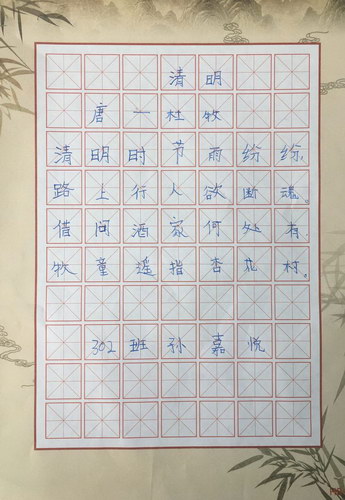 清明
唐一杜牧
清明时节雨纷纷,
路上行人欲断魂。
借问酒家何处有
牧童遥指杏花村。
302班孙嘉悦